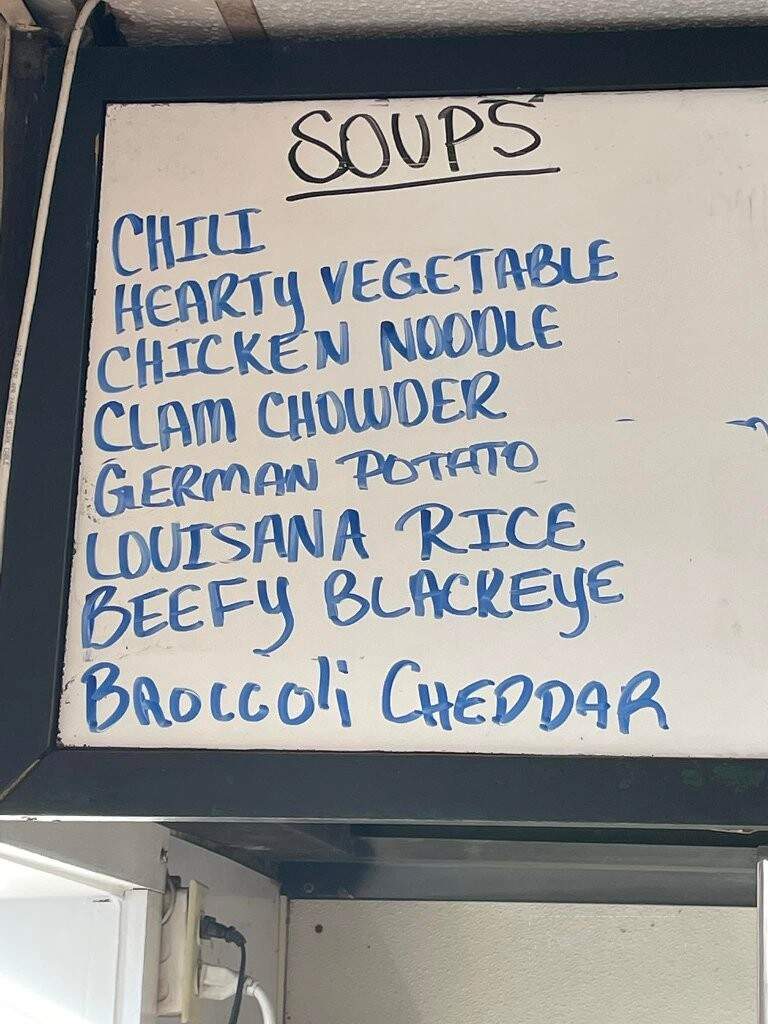 SOUPS
CHILI
HEARTY VEGETABLE
CHICKEN NOODLE
CLAM CHOWDER
GERMAN POTATO
LOUISANA RICE
BEEFY BLACKEYE
BROCCOLi CHEDDAR